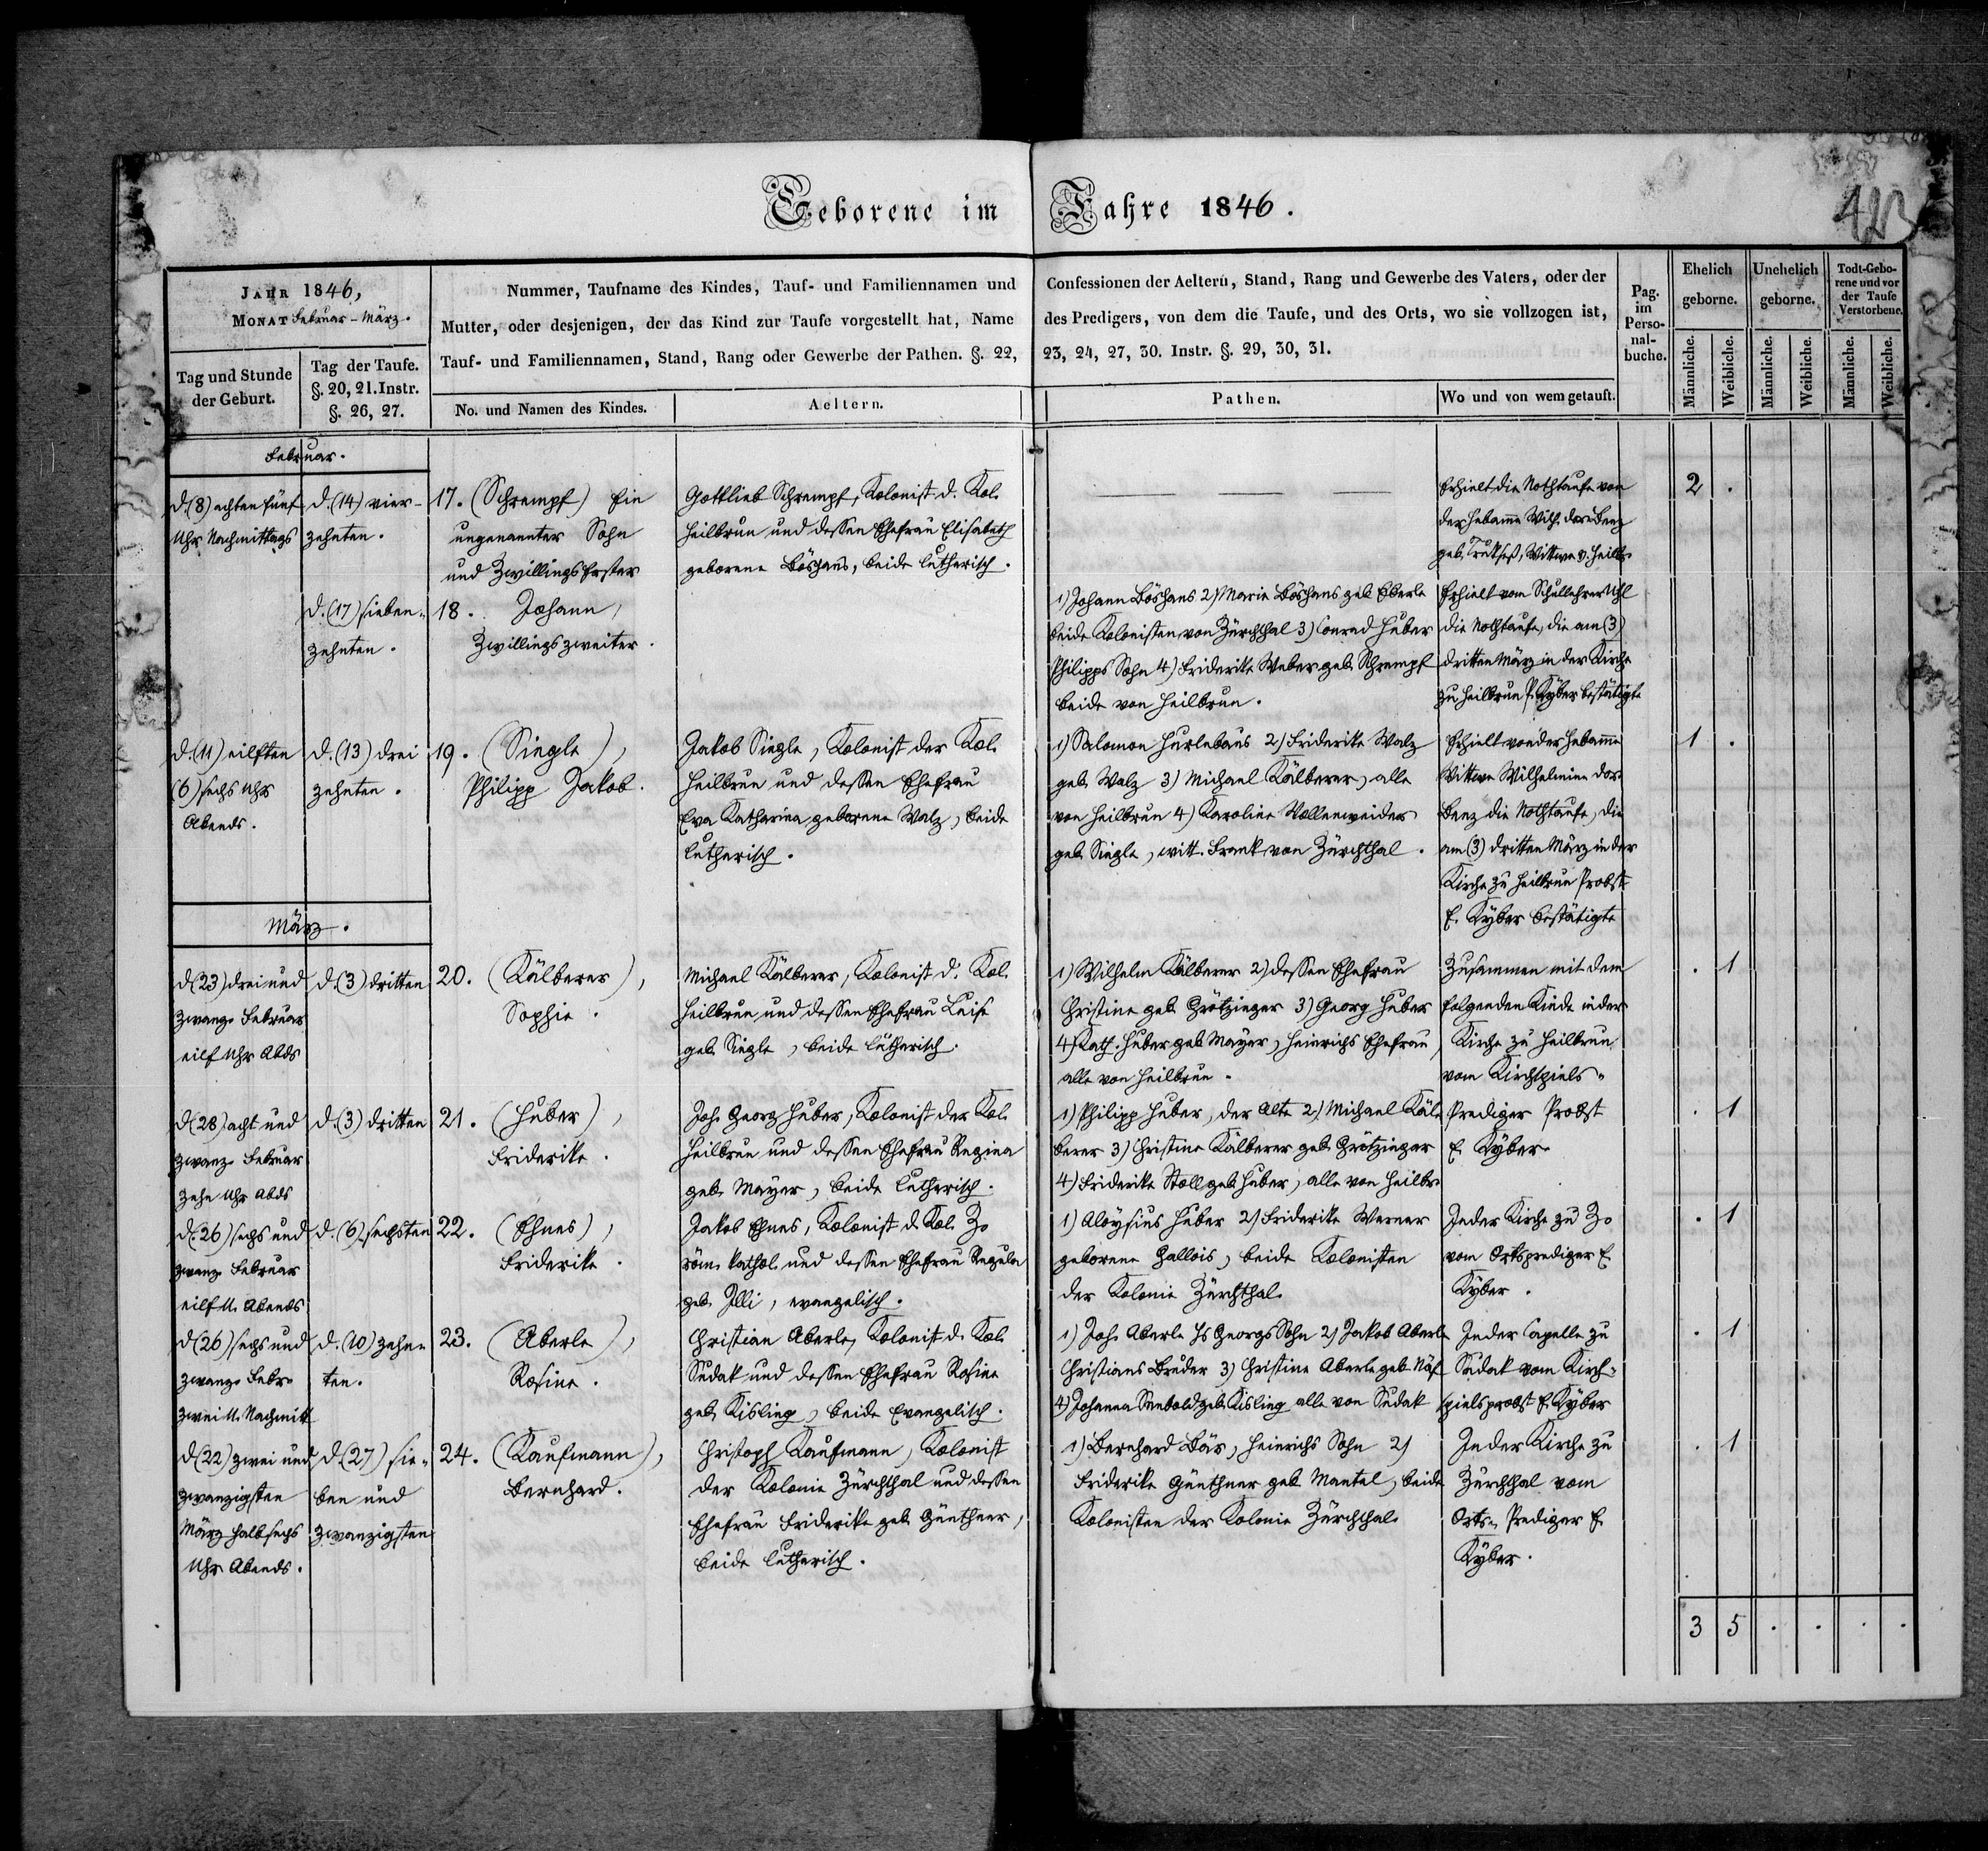 Geborene im Jahre 1846.
JAHR 1846,
MONAT Februar - März.
Tag und Stunde der Geburt.
Tag der Taufe. §. 20, 21. Instr. §. 26, 27.
Nummer, Taufname des Kindes, Tauf- und Familiennamen und
Mutter, oder desjenigen, der das Kind zur Taufe vorgestellt hat, Name
Tauf- und Familiennamen, Stand, Rang oder Gewerbe der Pathen. §. 22,
No. und Namen des Kindes.
Aeltern.
Confessionen der Aeltern, Stand, Rang und Gewerbe des Vaters, oder der
des Predigers, von dem die Taufe, und des Orts, wo sie vollzogen ist,
23, 24, 27, 30. Instr. §. 29, 30, 31.
Pathen.
Wo und von wem getauft.
Pag. im Perso-nal-buche.
Ehelich geborne.
Unehelich geborne.
Todt-Gebo-rene und vor der Taufe Verstorbene.
Männliche.
Weibliche.
Männliche.
Weibliche.
Männliche.
Weibliche.
Februar.
d. (8) achten fünf
Uhr Nachmittags
d. (14) vier-
zehnten.
17. (Schrempf) Ein
ungenannter Sohn
und Zwillings Erster
Gottlieb Schrempf, Kolonist d. Kol.
Heilbrun und dessen Ehefrau Elisabeth
geborene Böshans, beide lutherisch.
Erhielt die Nothtaufe von
der Hebamme Wilh. Dor. Benz
geb. Truksess, Wittwe v. Heilb.
2 .
d. (17) sieben-
zehnten.
18. Johann,
Zwillings zweiter.
1) Johann Böshans 2) Marie Böshans geb. Eberle
beide Kolonisten von Zürchthal 3) Conrad Huber
Philipps Sohn 4) Friderike Weber geb. Schrempf
beide von Heilbrun.
Erhielt vom Schullehrer Uhl
die Nothtaufe, die am (3)
dritten März in der Kirche
zu Heilbrun P. Kyber bestätigte
d. (11) eilften
(6) sechs Uhr
Abends.
d. (13) drei
zehnten.
19. (Siegle),
Philipp Jakob.
Jakob Siegle, Kolonist der Kol.
Heilbrun und dessen Ehefrau
Eva Katharina geborene Walz, beide
lutherisch.
1) Salomon Hurlebaus 2) Friderike Walz
geb. Walz 3) Michael Kälberer, alle
von Heilbrun 4) Karoline Vollenweider
geb. Siegle, witt. Frank von Zürchthal.
Erhielt von der Hebamme
Wittwe Wilhelmine Dor.
Benz die Nothtaufe, die
am (3) dritten März in der
Kirche zu Heilbrun Probst
E. Kyber bestätigte
1 .
März.
d. (23) drei und
zwanz. Februar
eilf Uhr Abds
d. (3) dritten
20. (Kälberer),
Sophie.
Michael Kälberer, Kolonist d. Kol.
Heilbrun und dessen Ehefrau Luise
geb. Siegle, beide lutherisch.
1) Wilhelm Kälberer 2) dessen Ehefrau
Christine geb. Grötzinger 3) Georg Huber
4) Kath. Huber geb. Mayer, Heinrichs Ehefrau,
alle von Heilbrun.
Zusammen mit dem
folgenden Kinde in der
Kirche zu Heilbrun
vom Kirchspiels-
. 1
d. (28) acht und
zwanz. Februar
zehn Uhr Abds
d. (3) dritten
21. (Huber),
Friderike.
Joh. Georg Huber, Kolonist der Kol.
Heilbrun und dessen Ehefrau Regina
geb. Mayer, beide lutherisch.
1) Philipp Huber, der Alte 2) Michael Käl-
berer 3) Christine Kälberer geb. Grötzinger
4) Friderike Stoll geb. Huber, alle von Heilbr.
Prediger Probst
E. Kyber.
. 1
d. (26) sechs und
zwanz. Februar
eilf U. Abends
d. (6) sechsten
22. (Ehnes),
Friderike.
Jakob Ehnes, Kolonist d. Kol. Z.
röm. kathol. und dessen Ehefrau Regula
geb. Illi, evangelisch.
1) Aloysius Huber 2) Friderike Werner
geborene Gallois, beide Kolonisten
der Kolonie Zürchthal.
In der Kirche zu Z.
vom Ortsprediger E.
Kyber.
. 1
d. (26) sechs und
zwanz. Febr.
zwei U. Nachmitt
d. (10) zehn-
ten.
23. (Aberle),
Rosine.
Christian Aberle, Kolonist d. Kol.
Sudak und dessen Ehefrau Rosine
geb. Kisling, beide Evangelisch.
1) Joh. Aberle Js Georgs Sohn 2) Jakob Aberle
Christians Bruder 3) Christine Aberle geb. Näf
4) Johanna geb. Kisling alle von Sudak
In der Capelle zu
Sudak vom Kirch-
spielsprobst E. Kyber
. 1
d. (22) zwei und
zwanzigsten
März halb sechs
Uhr Abends.
d. (27) sie-
ben und
zwanzigsten
24. (Kaufmann),
Bernhard.
Christoph Kaufmann, Kolonist
der Kolonie Zürchthal und dessen
Ehefrau Friderike geb. Günthner,
beide lutherisch.
1) Bernhard Bär, Heinrichs Sohn 2)
Friderike Günthner geb. Mantel, beide
Kolonisten der Kolonie Zürchthal.
In der Kirche zu
Zürchthal vom
Orts-Prediger E.
Kyber.
. 1
3 5 . . . .